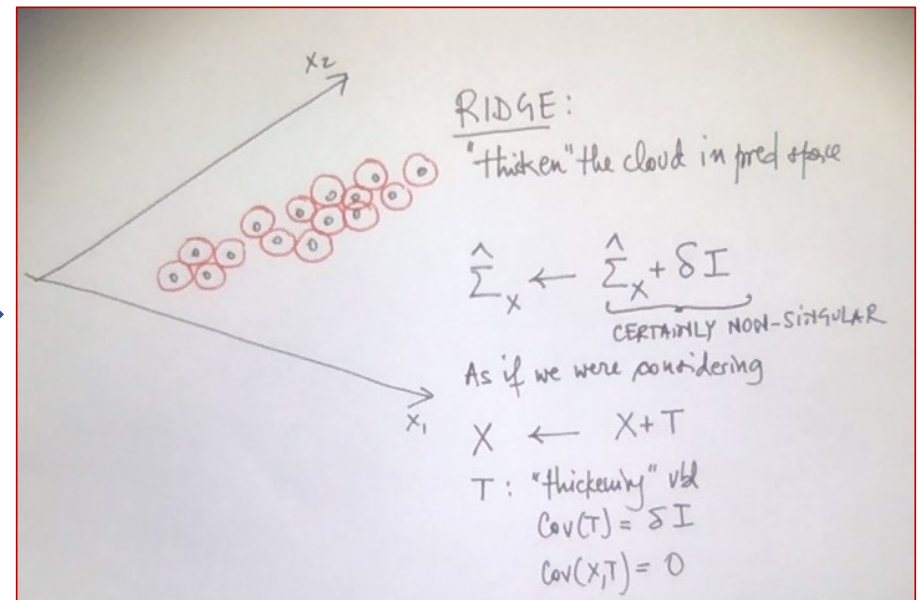 X2
RIDGE:
"thicken" the cloud in pred space
Σ̂x ← Σ̂x + δI
CERTAINLY NON-SINGULAR
As if we were considering
X1
X ← X+T
T: "thickening" vbl
Cov(T) = δI
Cov(X,T) = 0